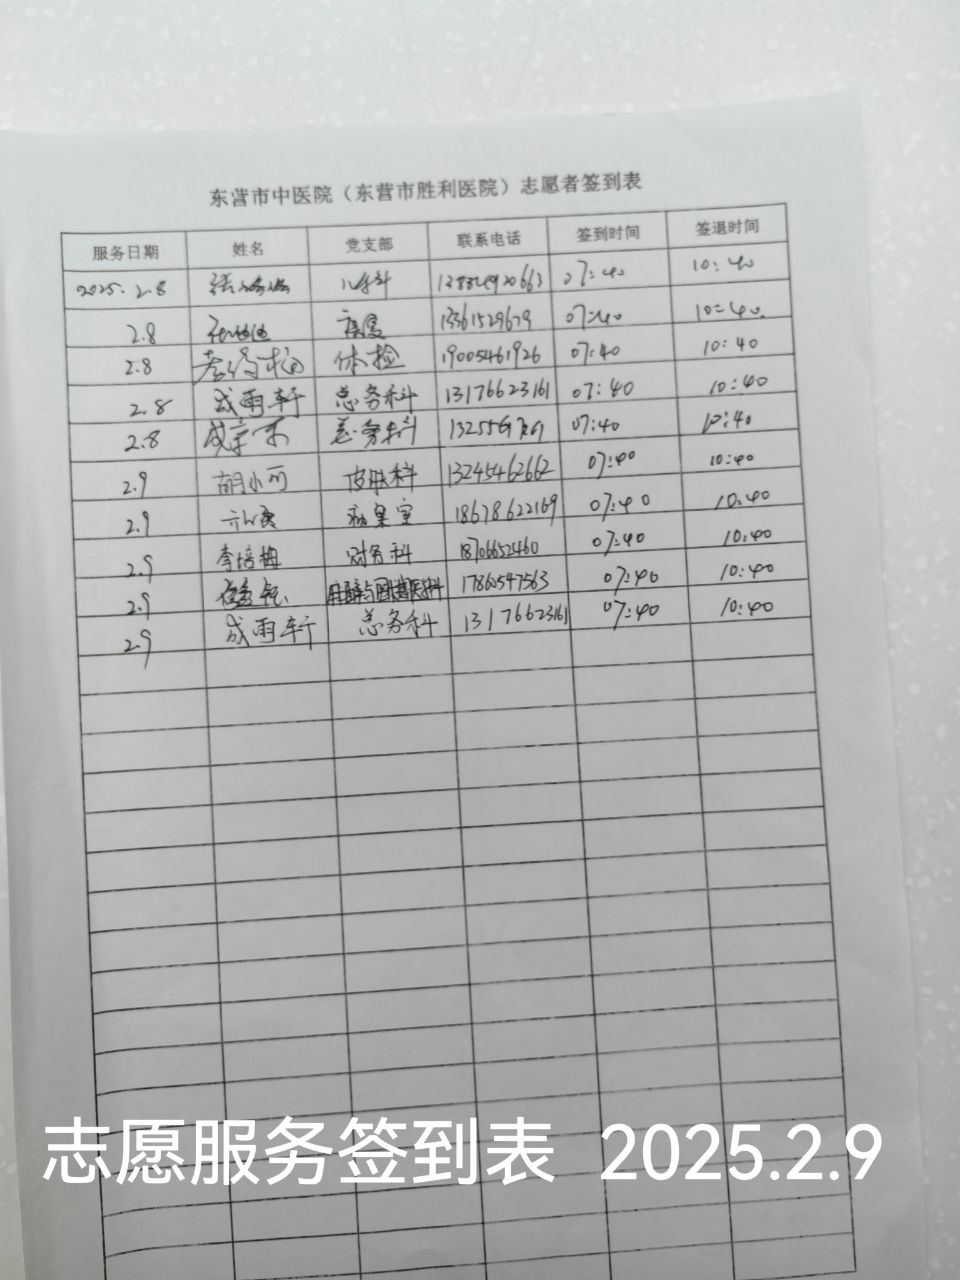 东营市中医院（东营市胜利医院）志愿者签到表
服务日期 姓名 党支部 联系电话 签到时间 签退时间
2025.2.8 儿科 07:40 10:40
2.8 13361529679 07:40 10:40
2.8 体检 19005461926 07:40 10:40
2.8 成雨轩 总务科 13176623161 07:40 10:40
2.8 总务科 07:40 10:40
2.9 胡小可 皮肤科 13245462662 07:40 10:40
2.9 18678622169 07:40 10:40
2.9 李培梅 财务科 18706652460 07:40 10:40
2.9 17860547563 07:40 10:40
2.9 成雨轩 总务科 13176623161 07:40 10:40
志愿服务签到表 2025.2.9